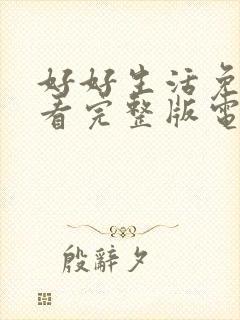 好好生活免
看完整版電
殷辭夕